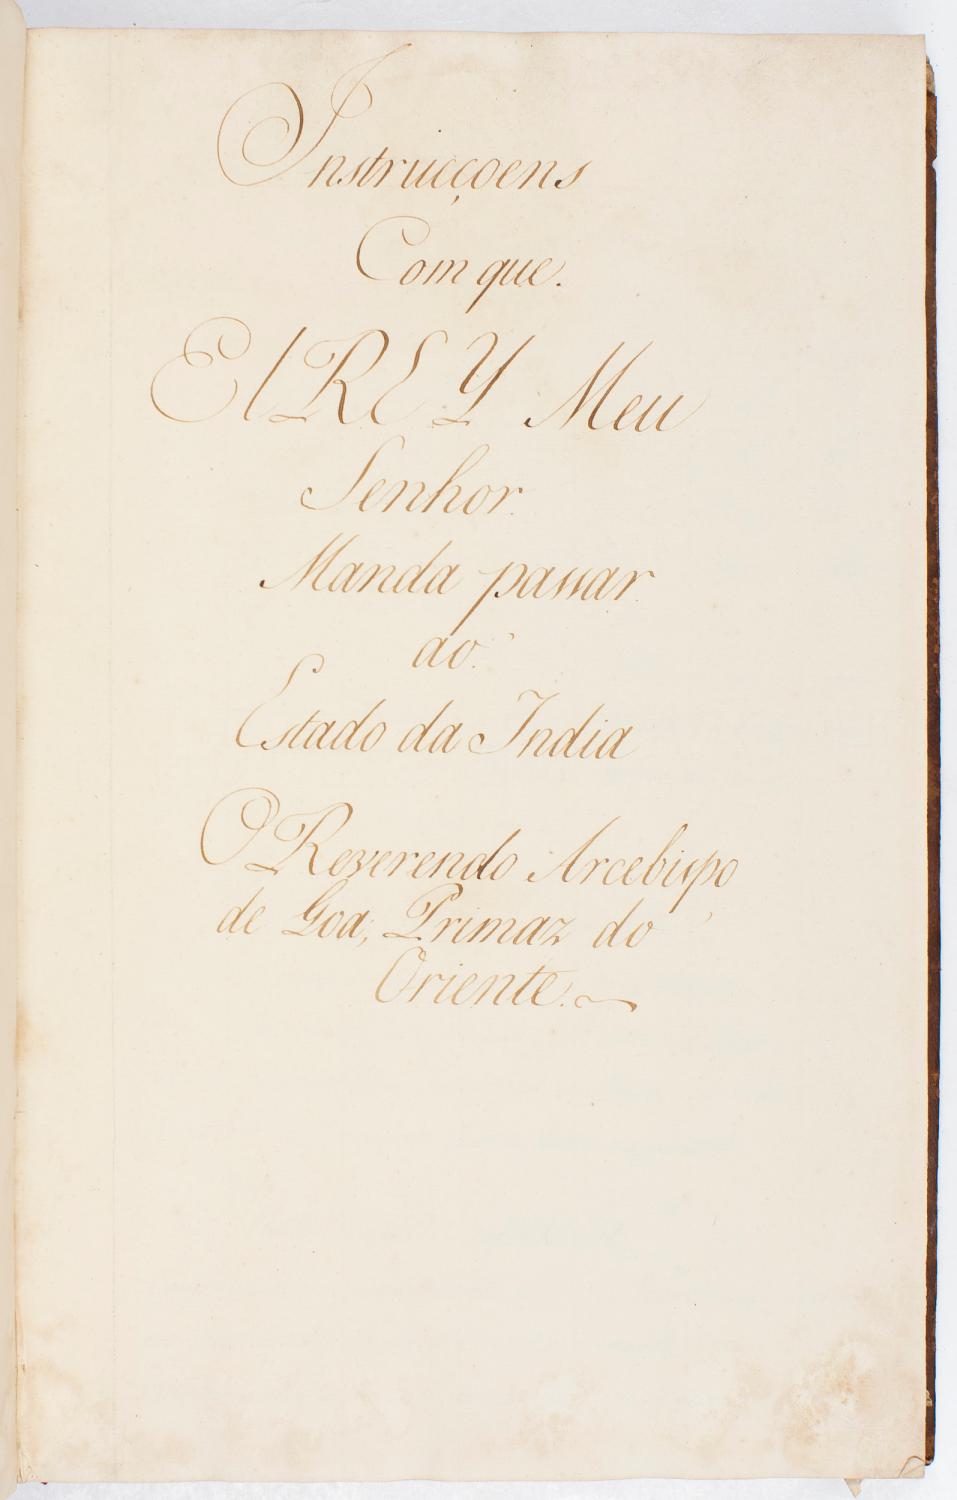 Instrucçoens
Com que.
El REY Meu
Senhor.
Manda passar
ao.
Estado da India
O Reverendo Arcebispo
de Goa, Primaz do
Oriente.